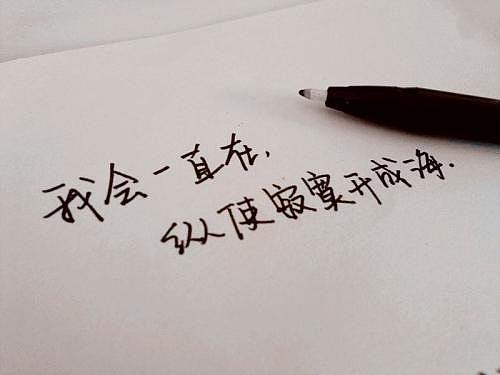 我会一直在,
纵使寂寞开成海.